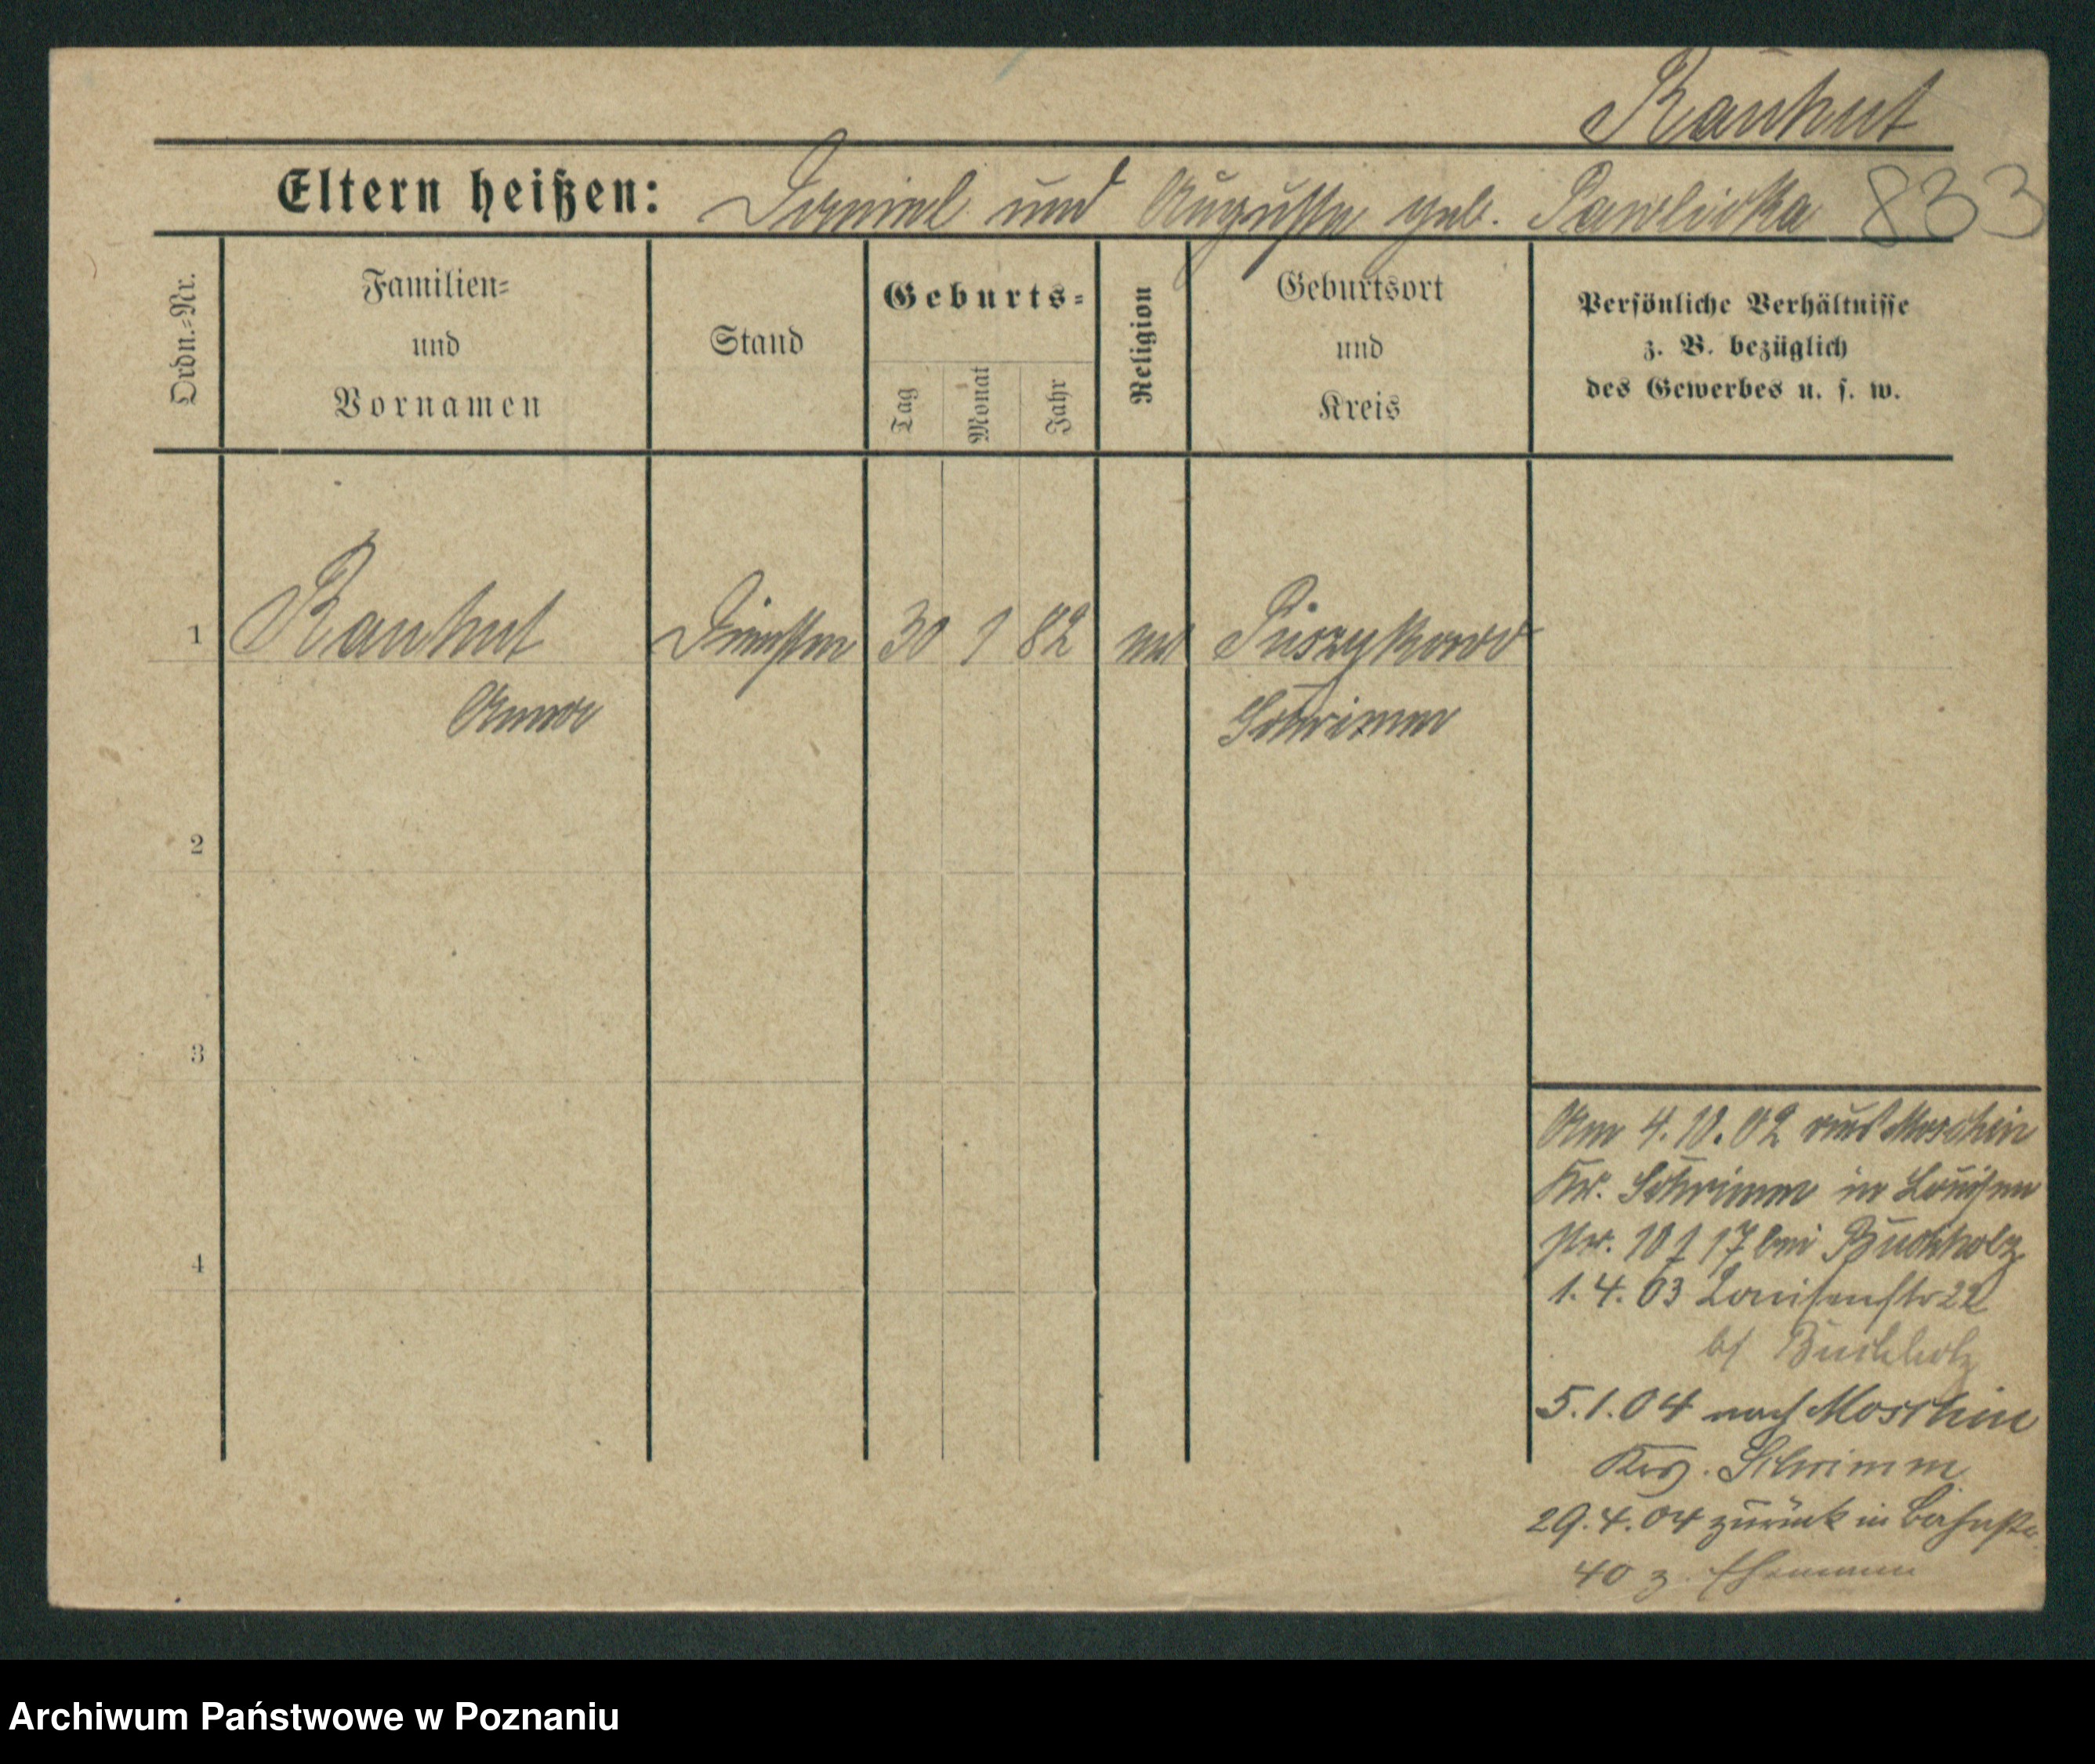 Rauhut
Eltern heißen: Daniel und Auguste geb. Pawlicka 833
Ordn.=Nr.
Familien=
und
Vornamen
Stand
Geburts=
Tag
Monat
Jahr
Religion
Geburtsort
und
Kreis
Persönliche Verhältnisse
z. B. bezüglich
des Gewerbes u. s. w.
1 Rauhut 30 1 82 Puszykowo
Anna Schrimm
2
3
4
Am 4.10.02 aus Moschin
Kr. Schrimm in Louisen
str. 17 bei Buchholz
1.4.03 Louisenstr 22
b/ Buchholz
5.1.04 nach Moschin
Krs. Schrimm
29.4.04 zurück in
40 z. Ehemann
Archiwum Państwowe w Poznaniu